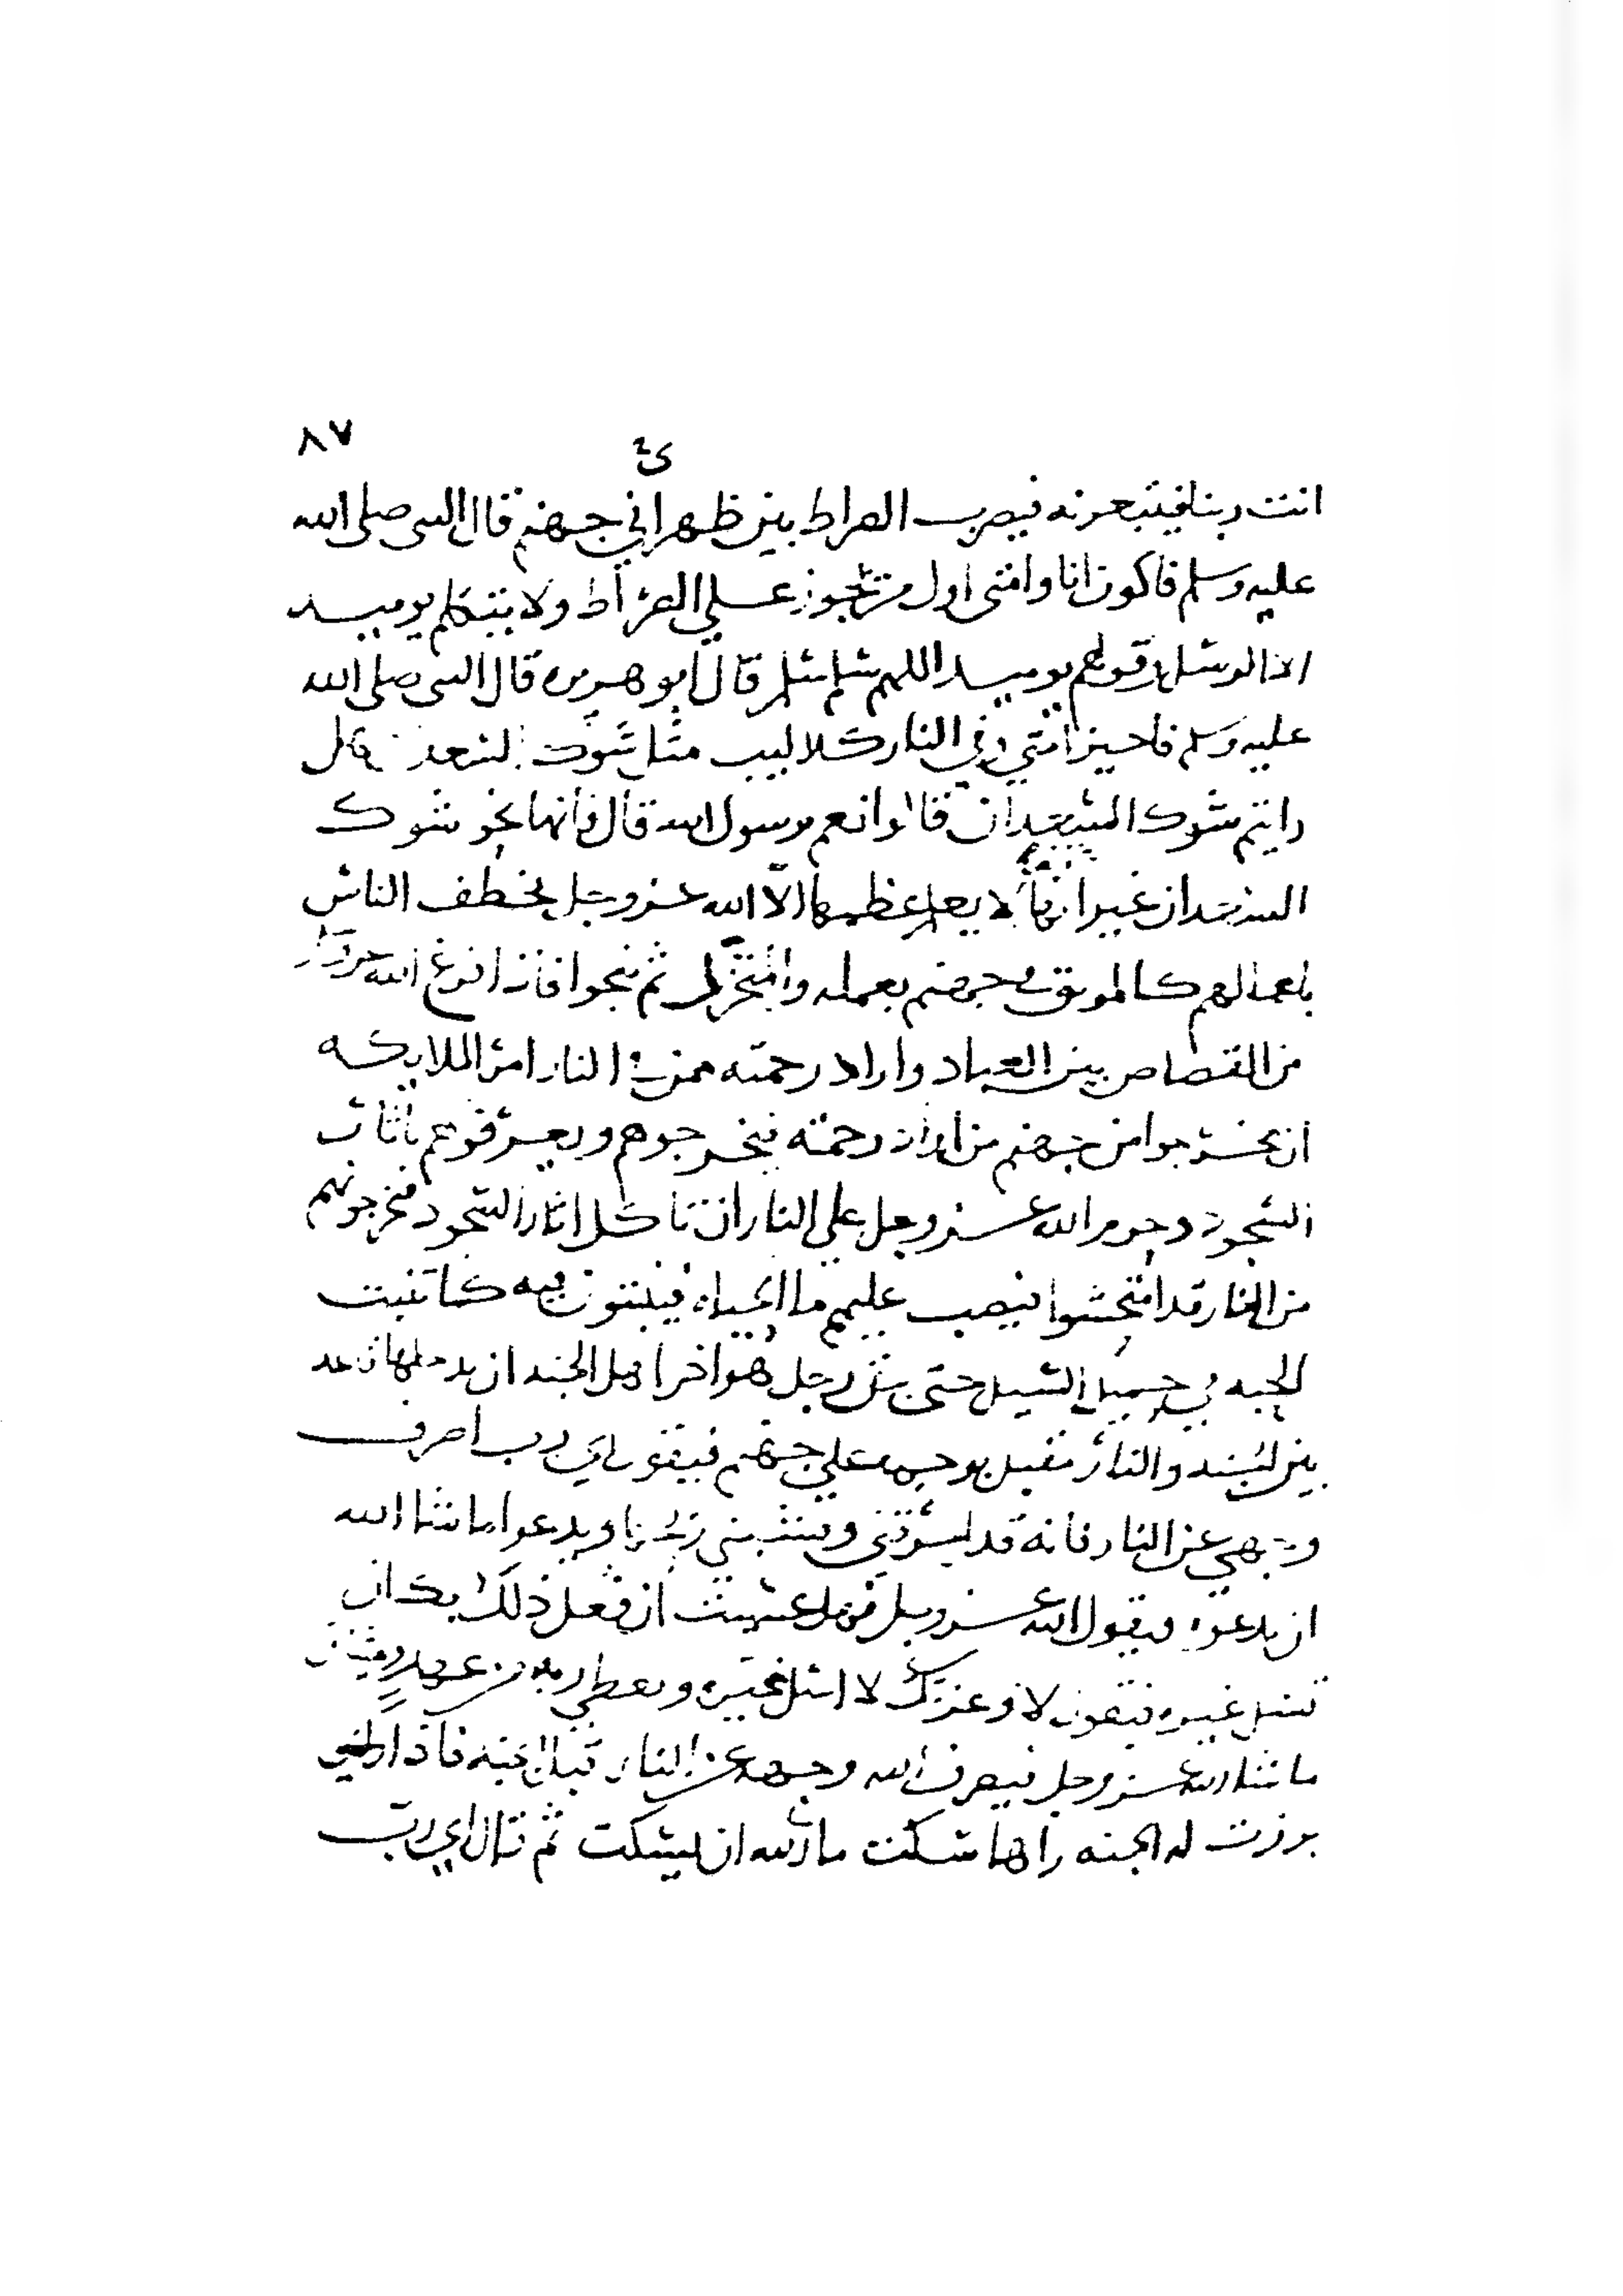 ٨٧
انت ربنا فيتبعونه فيضرب الصراط بين ظهراني جهنم قال النبي صلى الله
عليه وسلم فاكون انا وامتي اول من يجوز علي الصراط ولا يتكلم يوميد
الا الرسل وقولهم يوميد اللهم سلم سلم قال ابو هريره قال النبي صلى الله
عليه وسلم فاحيز امتي وفي النار كلاليب مثل شوك السعدان هل
رايتم شوك السعدان قالوا نعم يرسول الله قال فانها نحو شوك
السعدان غير انها لا يعلم عظمها الا الله عز وجل يخطف الناس
باعمالهم كالموبق في جهنم بعمله والمخردل ثم ينجوا فاذا فرغ الله عز وجل
من القصاص بين العباد واراد رحمته ممن في النار امر الملايكه
ان يخرجوا من جهنم من اراد رحمته فيخرجوهم ويعرفوهم باثار
السجود وحرم الله عز وجل علي النار ان تاكل اثار السجود فيخرجونهم
من النار قد امتحشوا فيصب عليهم ما الحياه فينبتون فيه كما تنبت
الحبه في حميل السيل حتى رجل هو اخر اهل الجنه ان يدخلها قاعد
بين الجنه والنار مقبل بوجهه علي جهنم فيقول اي رب اصرف
وجهي عن النار فانه قد وقشبني ريحها ويدعوا ما شا الله
ان يدعوه فيقول الله عز وجل فهل عسيت ان فعل ذلك بك ان
تسل غيره فيقول لا وعزتك لا اسل غيره ويعطي ربه من عهد وميثاق
ما شا الله عز وجل فيصرف الله وجهه عن النار قبل الجنه فاذا
برزت له الجنه راها سكت ما الله ان يسكت ثم قال اي رب